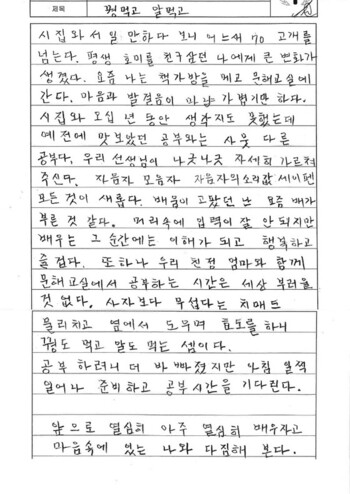 제목 꿩먹고 알먹고
시집와서 일만하다 보니 어느새 70 고개를
넘는다. 평생 호미를 친구삼던 나에게 큰 변화가
생겼다. 요즘 나는 책가방을 메고 문해교실에
간다. 마음과 발걸음이 마냥 가볍기만 하다.
시집와 오십년 동안 생각지도 못했는데
예전에 맛보았던 공부와는 사뭇 다른
공부다. 우리 선생님이 나긋나긋 자세히 가르쳐
주신다. 자음자 모음자 자음자의소리값 세이펜
모든것이 새롭다. 배움이 고팠던 난 요즘 배가
부른 것 같다. 머리속에 입력이 잘 안되지만
배우는 그 순간에는 이해가 되고 행복하고
즐겁다. 또하나 우리 친정 엄마와 함께
문해교실에서 공부하는 시간은 세상 부러울
것 없다. 사자보다 무섭다는 치매도
물리치고 옆에서 도우며 효도를 하니
꿩도 먹고 알도 먹는 셈이다.
공부 하려니 더 바빠졌지만 아침 일찍
일어나 준비하고 공부시간을 기다린다.
앞으로 열심히 아주 열심히 배우자고
마음속에 있는 나와 다짐해 본다.